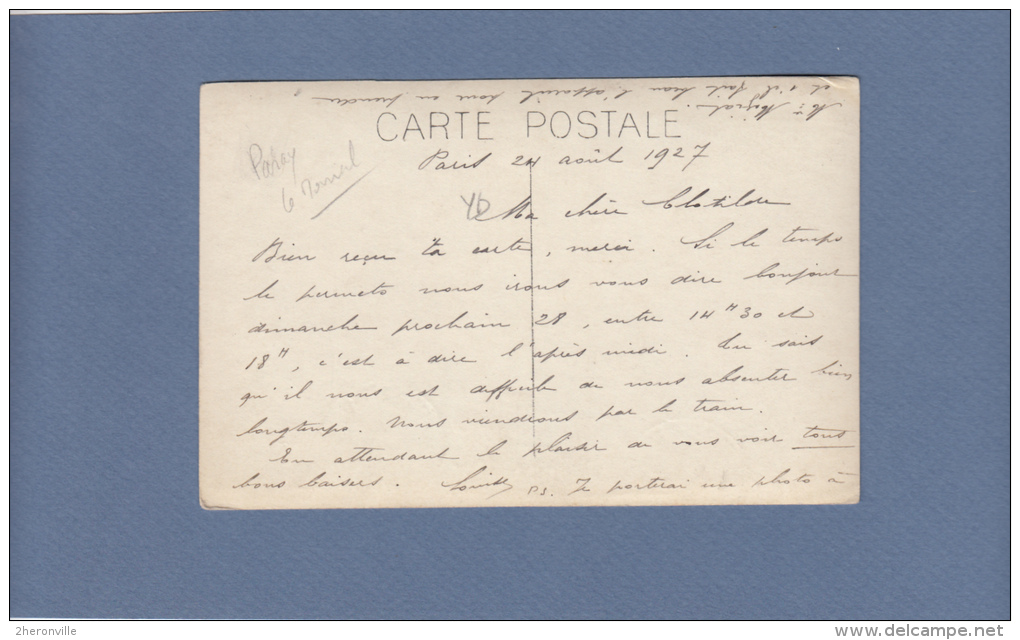 CARTE POSTALE
Paray
le Monial
Paris 24 août 1927
Ma chère Clotilde
Bien reçu ta carte, merci. Si le temps
le permets nous irons vous dire bonjour
dimanche prochain 28, entre 14H30 et
18H, c'est à dire l'après midi. Tu sais
qu'il nous est difficile de nous absenter bien
longtemps. Nous viendrons par le train.
En attendant le plaisir de vous voir tous
bons baisers. Louise PS. Je porterai une photo à
et s'il fait beau l'appareil pour en prendre
2heronville
www.delcampe.net